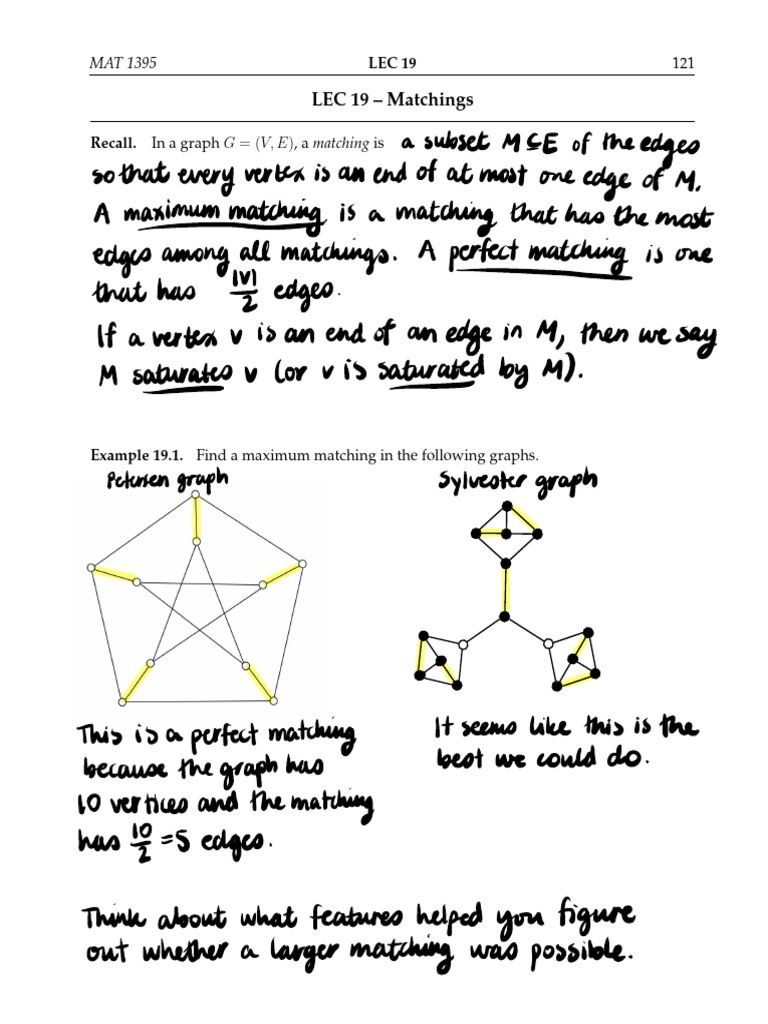 MAT 1395 LEC 19 121
LEC 19 – Matchings
Recall. In a graph G = (V, E), a matching is a subset M ⊆ E of the edges
so that every vertex is an end of at most one edge of M.
A maximum matching is a matching that has the most
edges among all matchings. A perfect matching is one
that has |V|/2 edges.
If a vertex v is an end of an edge in M, then we say
M saturates v (or v is saturated by M).
Example 19.1. Find a maximum matching in the following graphs.
Petersen graph
Sylvester graph
This is a perfect matching
because the graph has
10 vertices and the matching
has 10/2 = 5 edges.
It seems like this is the
best we could do.
Think about what features helped you figure
out whether a larger matching was possible.